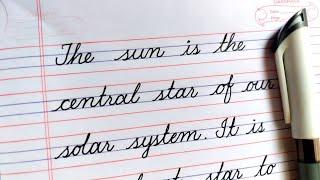 The sun is the
central star of our
solar system. It is
star to